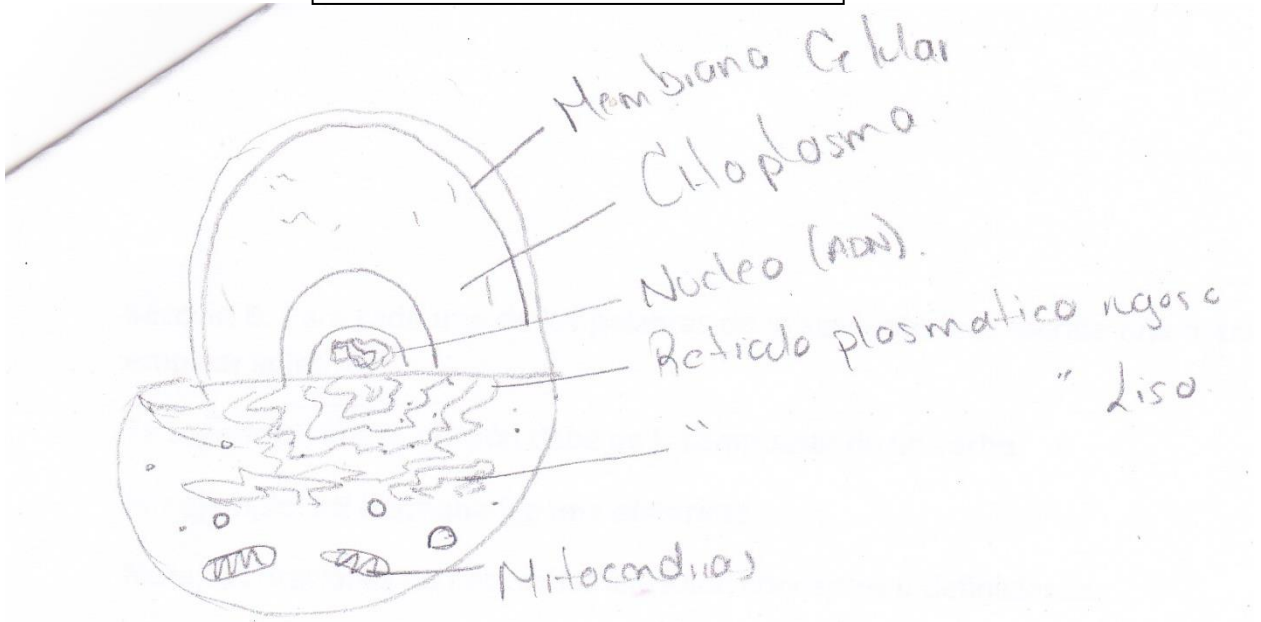 Membrana Celular
Citoplasma
Nucleo (ADN).
Reticulo plasmatico rugoso
" " Liso
Mitocondrias